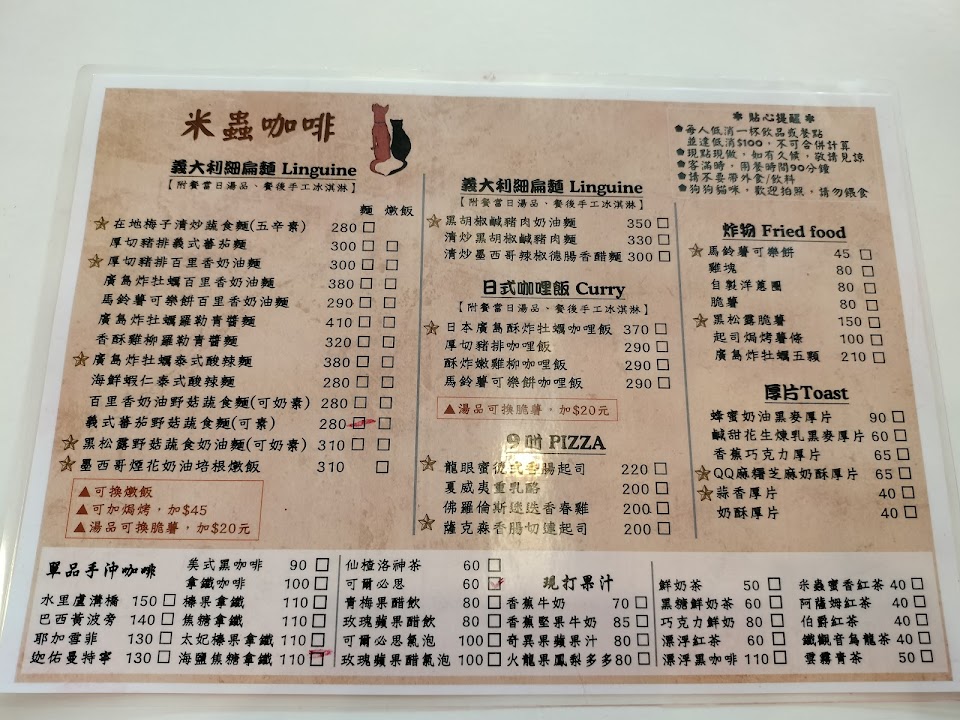 米蟲咖啡
義大利細扁麵 Linguine
【附餐當日湯品、餐後手工冰淇淋】
麵 燉飯
☆在地梅子清炒蔬食麵(五辛素) 280 □
厚切豬排義式蕃茄麵 300 □ □
☆厚切豬排百里香奶油麵 300 □ □
廣島炸牡蠣百里香奶油麵 380 □ □
馬鈴薯可樂餅百里香奶油麵 290 □ □
廣島炸牡蠣羅勒青醬麵 410 □ □
香酥雞柳羅勒青醬麵 320 □ □
☆廣島炸牡蠣泰式酸辣麵 380 □ □
海鮮蝦仁泰式酸辣麵 280 □ □
百里香奶油野菇蔬食麵(可奶素) 280 □ □
義式蕃茄野菇蔬食麵(可素) 280 □ □
☆黑松露野菇蔬食奶油麵(可奶素) 310 □ □
☆墨西哥煙花奶油培根燉飯 310 □
▲可換燉飯
▲可加焗烤，加$45
▲湯品可換脆薯，加$20元
義大利細扁麵 Linguine
【附餐當日湯品、餐後手工冰淇淋】
☆黑胡椒鹹豬肉奶油麵 350 □
清炒黑胡椒鹹豬肉麵 330 □
清炒墨西哥辣椒德腸香醋麵 300 □
日式咖哩飯 Curry
【附餐當日湯品、餐後手工冰淇淋】
☆日本廣島酥炸牡蠣咖哩飯 370 □
厚切豬排咖哩飯 290 □
酥炸嫩雞柳咖哩飯 290 □
馬鈴薯可樂餅咖哩飯 290 □
▲湯品可換脆薯，加$20元
9吋 PIZZA
☆龍眼蜜德式香腸起司 220 □
夏威夷重乳酪 200 □
佛羅倫斯迷迭香春雞 200 □
☆薩克森香腸切達起司 200 □
✽ 貼心提醒 ✽
每人低消一杯飲品或餐點
並達低消$100，不可合併計算
現點現做，如有久候，敬請見諒
客滿時，用餐時間90分鐘
請不要帶外食/飲料
狗狗貓咪，歡迎拍照，請勿餵食
炸物 Fried food
☆馬鈴薯可樂餅 45 □
雞塊 80 □
自製洋蔥圈 80 □
脆薯 80 □
☆黑松露脆薯 150 □
起司焗烤薯條 100 □
廣島炸牡蠣五顆 210 □
厚片Toast
蜂蜜奶油黑麥厚片 90 □
鹹甜花生煉乳黑麥厚片 60 □
香蕉巧克力厚片 65 □
☆QQ麻糬芝麻奶酥厚片 65 □
☆蒜香厚片 40 □
奶酥厚片 40 □
單品手沖咖啡
水里盧溝橋 150 □
巴西黃波旁 140 □
耶加雪菲 130 □
迦佑曼特寧 130 □
美式黑咖啡 90 □
拿鐵咖啡 100 □
榛果拿鐵 110 □
焦糖拿鐵 110 □
太妃榛果拿鐵 110 □
海鹽焦糖拿鐵 110 □
仙楂洛神茶 60 □
可爾必思 60 □
青梅果醋飲 80 □
玫瑰蘋果醋飲 80 □
可爾必思氣泡 100 □
玫瑰蘋果醋氣泡 100 □
現打果汁
香蕉牛奶 70 □
香蕉堅果牛奶 85 □
奇異果蘋果汁 80 □
火龍果鳳梨多多 80 □
鮮奶茶 50 □
黑糖鮮奶茶 60 □
巧克力鮮奶 80 □
漂浮紅茶 60 □
漂浮黑咖啡 110 □
米蟲蜜香紅茶 40 □
阿薩姆紅茶 40 □
伯爵紅茶 40 □
鐵觀音烏龍茶 40 □
雲霧青茶 50 □